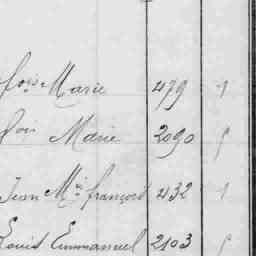 fois Marie 479 1
fois Marie 2090 1
Jean Mie françois 432 1
Louis Emmanuel 2103 1